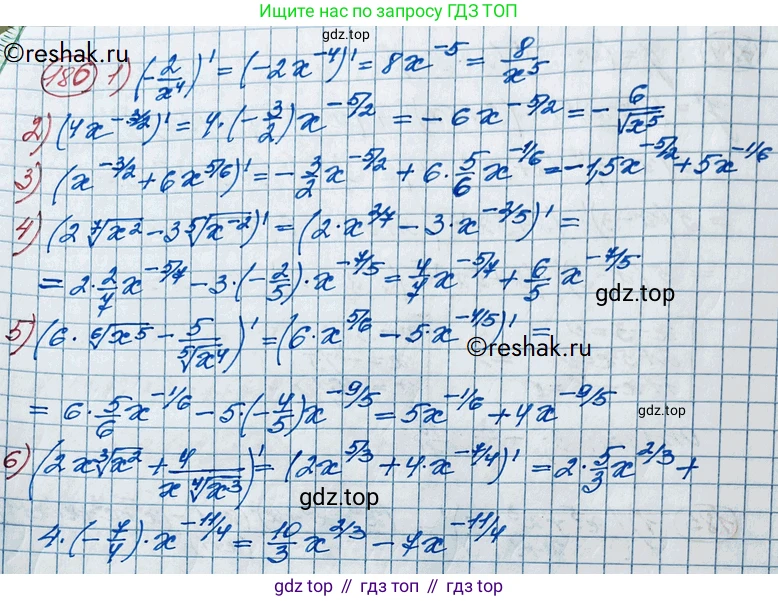 Ищите нас по запросу ГДЗ ТОП
©reshak.ru
гдз.top
186) 1) (-2/x⁴)' = (-2x⁻⁴)' = 8x⁻⁵ = 8/x⁵
2) (4x^(-3/2))' = 4·(-3/2)x^(-5/2) = -6x^(-5/2) = -6/√x⁵
3) (x^(-3/2) + 6x^(5/6))' = -3/2 x^(-5/2) + 6·5/6 x^(-1/6) = -1,5x^(-5/2) + 5x^(-1/6)
4) (2 ⁷√x² - 3 ⁵√x⁻²)' = (2·x^(2/7) - 3·x^(-2/5))' =
= 2·2/7 x^(-5/7) - 3·(-2/5)·x^(-7/5) = 4/7 x^(-5/7) + 6/5 x^(-7/5)
gdz.top
5) (6·⁶√x⁵ - 5/⁵√x⁴)' = (6·x^(5/6) - 5·x^(-4/5))' =
©reshak.ru
= 6·5/6 x^(-1/6) - 5·(-4/5)x^(-9/5) = 5x^(-1/6) + 4x^(-9/5)
6) (2x ³√x² + 4/(x ⁴√x³))' = (2x^(5/3) + 4·x^(-7/4))' = 2·5/3 x^(2/3) +
гдз.top
4·(-7/4)·x^(-11/4) = 10/3 x^(2/3) - 7x^(-11/4)
gdz.top // гдз.топ // гдз.top